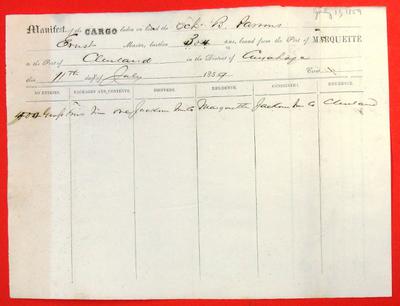 July 11, 1859
Manifest of the CARGO laden on board the Sch. B. Parsons
Master, burthen tons, bound from the Port of MARQUETTE
to the Port of Cleveland in the District of Cuyahoga
this 11th day of July 1859
NO ENTRIES. PACKAGES AND CONTENTS. SHIPPERS. RESIDENCE. CONSIGNEES. RESIDENCE.
400 Gross Tons Iron ore Jackson Iron Co Marquette Jackson Iron Co Cleveland